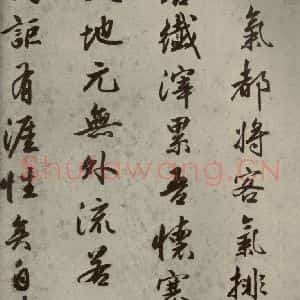 氣都將客氣排
纖滓累吾懷寒
地元無外流若
詎有涯性矣自
Shufawang.CN